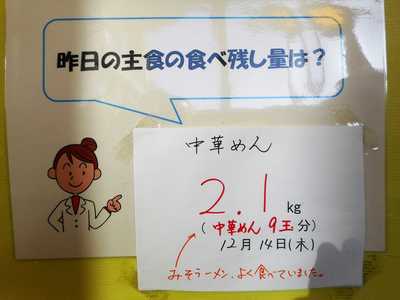 昨日の主食の食べ残し量は？
中華めん
2.1 kg
(中華めん 9玉分)
12月14日(木)
みそラーメン、よく食べていました。